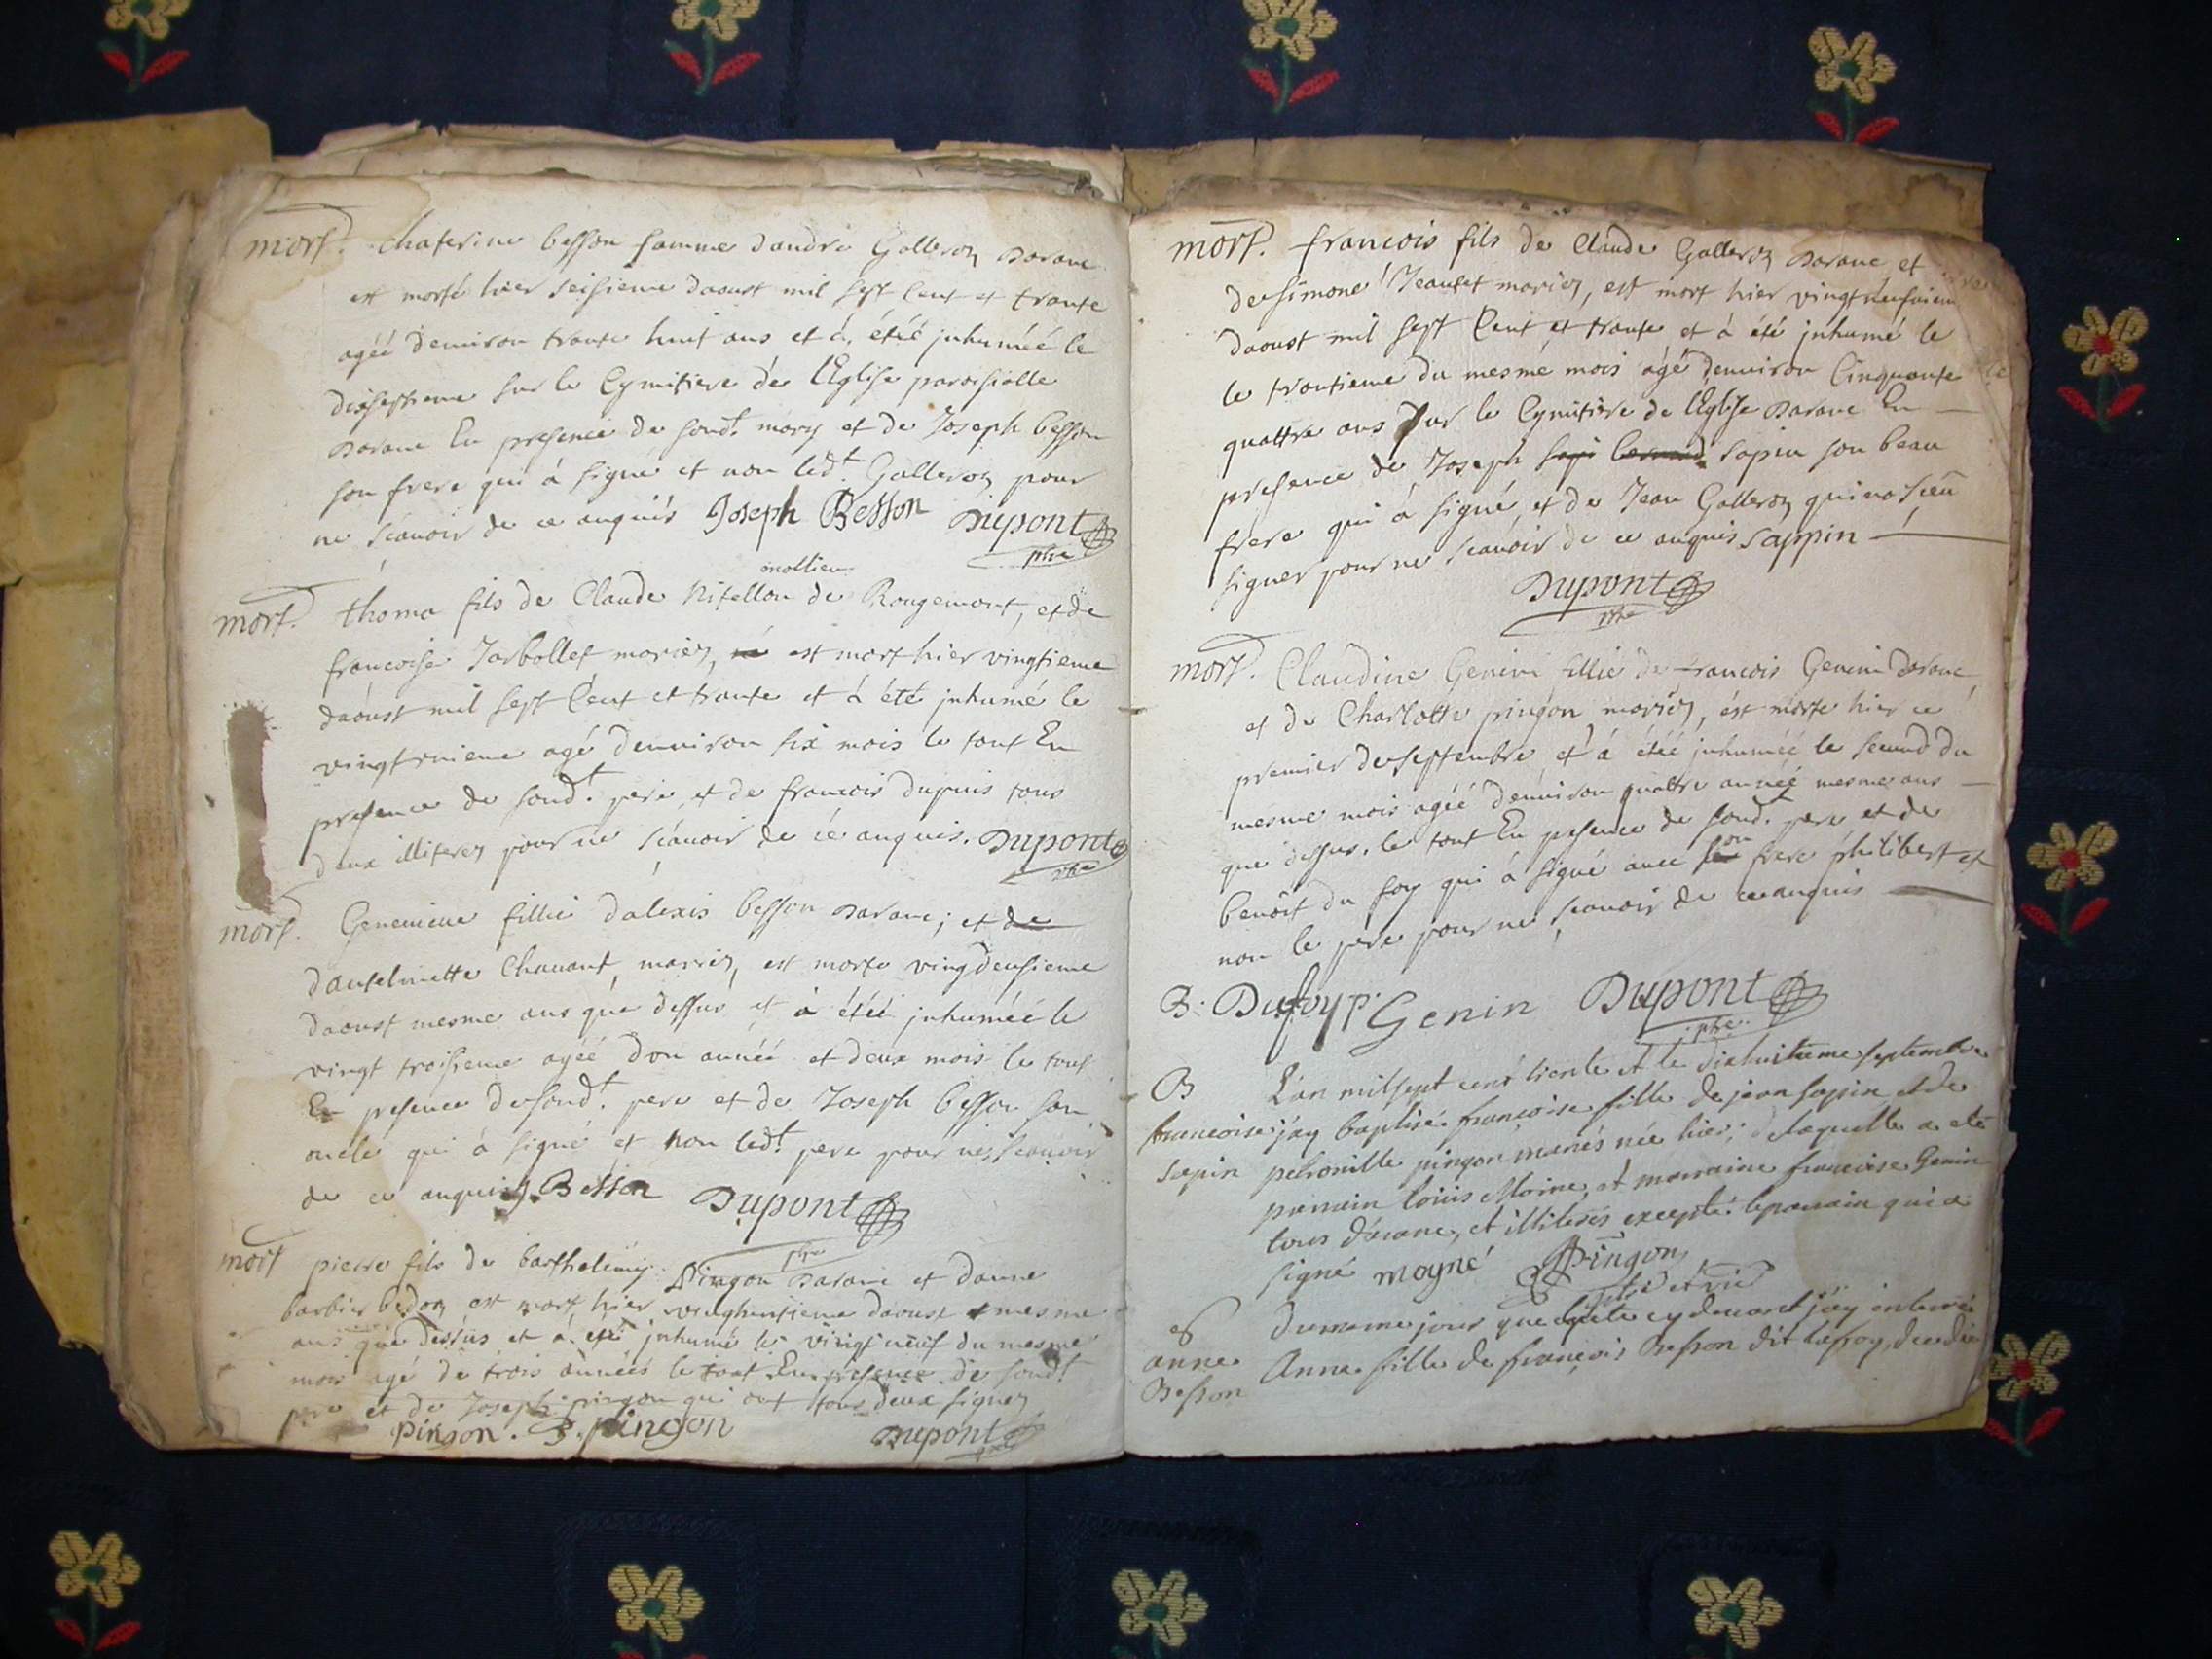 mort. Chaterine besson famme dandré Galleron Darane
est morte hier seisieme daoust mil sept cent et trante
agéé denviron trante huit ans et à étéé inhuméé le
dixseptieme sur le Cymitiere de l'Eglise paroissialle
Darane En presence de sond.t mary et de Joseph besson
son frere qui à signé et non led.t Galleron pour
ne scavoir de ce anquis Joseph Besson Dupont
ptre
mollieu
mort. thoma fils de Claude Nitellon de Rougemont, et de
francoise Jarbollet mariez, est mort hier vingtieme
daoust mil sept Cent et trante et à été inhumé le
vingtunieme agé denviron six mois le tout En
presence de sond.t pere, et de francois dupuis tous
deux illiterez pour ne scavoir de ce anquis. Dupont
ptre
mort. Genevieve fillie dalexis besson Darane; et de
dantelmette Chavant mariez, est morte vingdeusieme
daoust mesme ans que dessus et à étéé inhuméé le
vingt troisieme agéé don annéé et deux mois le tout
En presence de sond.t pere et de Joseph besson son
oncle qui à signé et non led.t pere pour ne scavoir
de ce anquis J. Besson Dupont
ptre
mort pierre fils de barthelemy Pingon Darane et danne
barbier bedoz est mort hier vinghuitieme daoust mesme
ans que dessus et à été inhumé le vingt neuf du mesme
mois agé de trois annéés le tout En presence de sond.t
pere et de Joseph pingon qui ont tous deux signez
Pingon. J. pingon Dupont
mort. francois fils de Claude Galleron Darane et
de simone Jeantet mariez, est mort hier vingtneufvieme
daoust mil sept Cent et trante et à été inhumé le
le trantieme du mesme mois agé denviron Cinquante
quattre ans sur le Cymitiere de l'Eglise Darane En
presence de Joseph sapin son beau
frere qui à signé et de Jean Galleron qui na sceu
signer pour ne scavoir de ce anquis sappin
Dupont
ptre
mort. Claudine Genini fillie de francois Genin Darane
et de Charlotte pingon mariez, est morte hier ce
premier de septembre et à étéé inhuméé le second du
mesme mois agéé denviron quattre annéé mesme ans
que dessus. le tout En presence de sond.t pere et de
benoit du foy qui à signé avec son frere philibert et
non le pere pour ne scavoir de ce anquis
B: Dufoy p. Genin Dupont
ptre
B L'an milsept cent trente et le dixhuitieme septembre
francoise j'ay baptisé francoise fille de jean sapin et de
sapin petronille pingon mariés née hier; de laquelle a eté
parrain louis Moine, et marraine francoise Genin
tous d'arane, et illiterés excepté le parrain qui a
signé moyné Pingon
ptre et vic
B Dumeme jour que cy devant j'ay
anne Anne fille de françois Besson dit
Besson